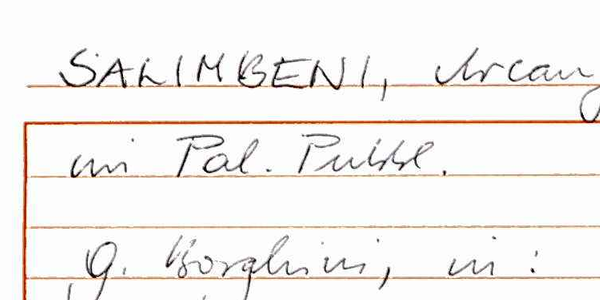 SALIMBENI, Arcang
in Pal. Pubbl.
G. Borghini, in: